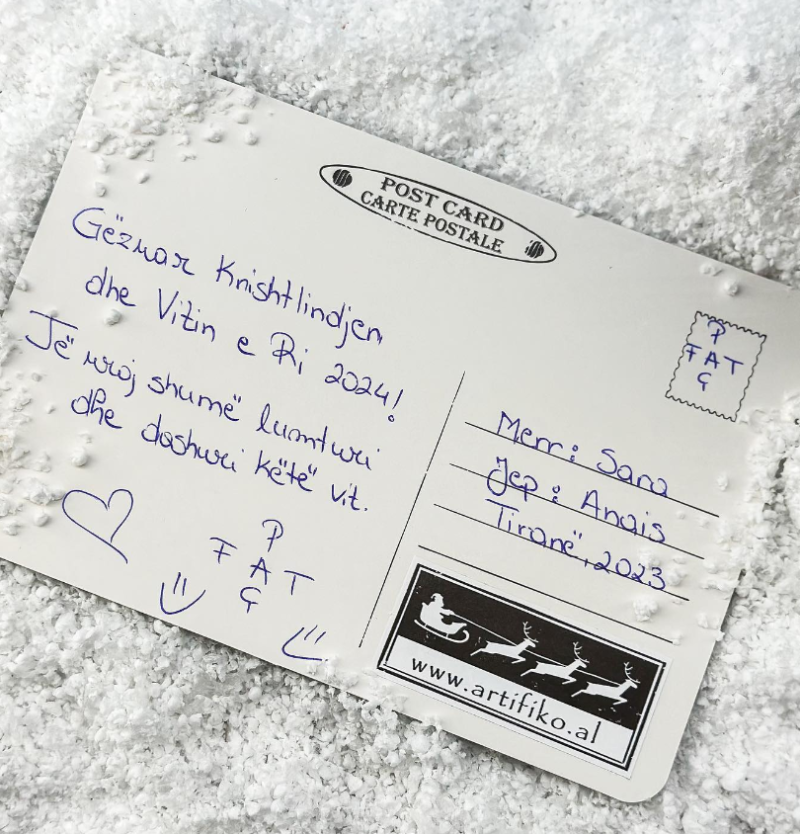 POST CARD
CARTE POSTALE
Gëzuar Krishtlindjen
dhe Vitin e Ri 2024!
Të uroj shumë lumturi
dhe dashuri këtë vit.
P
F A T
Ç
P
F A T
Ç
Merr: Sara
Jep: Anais
Tiranë, 2023
www.artifiko.al